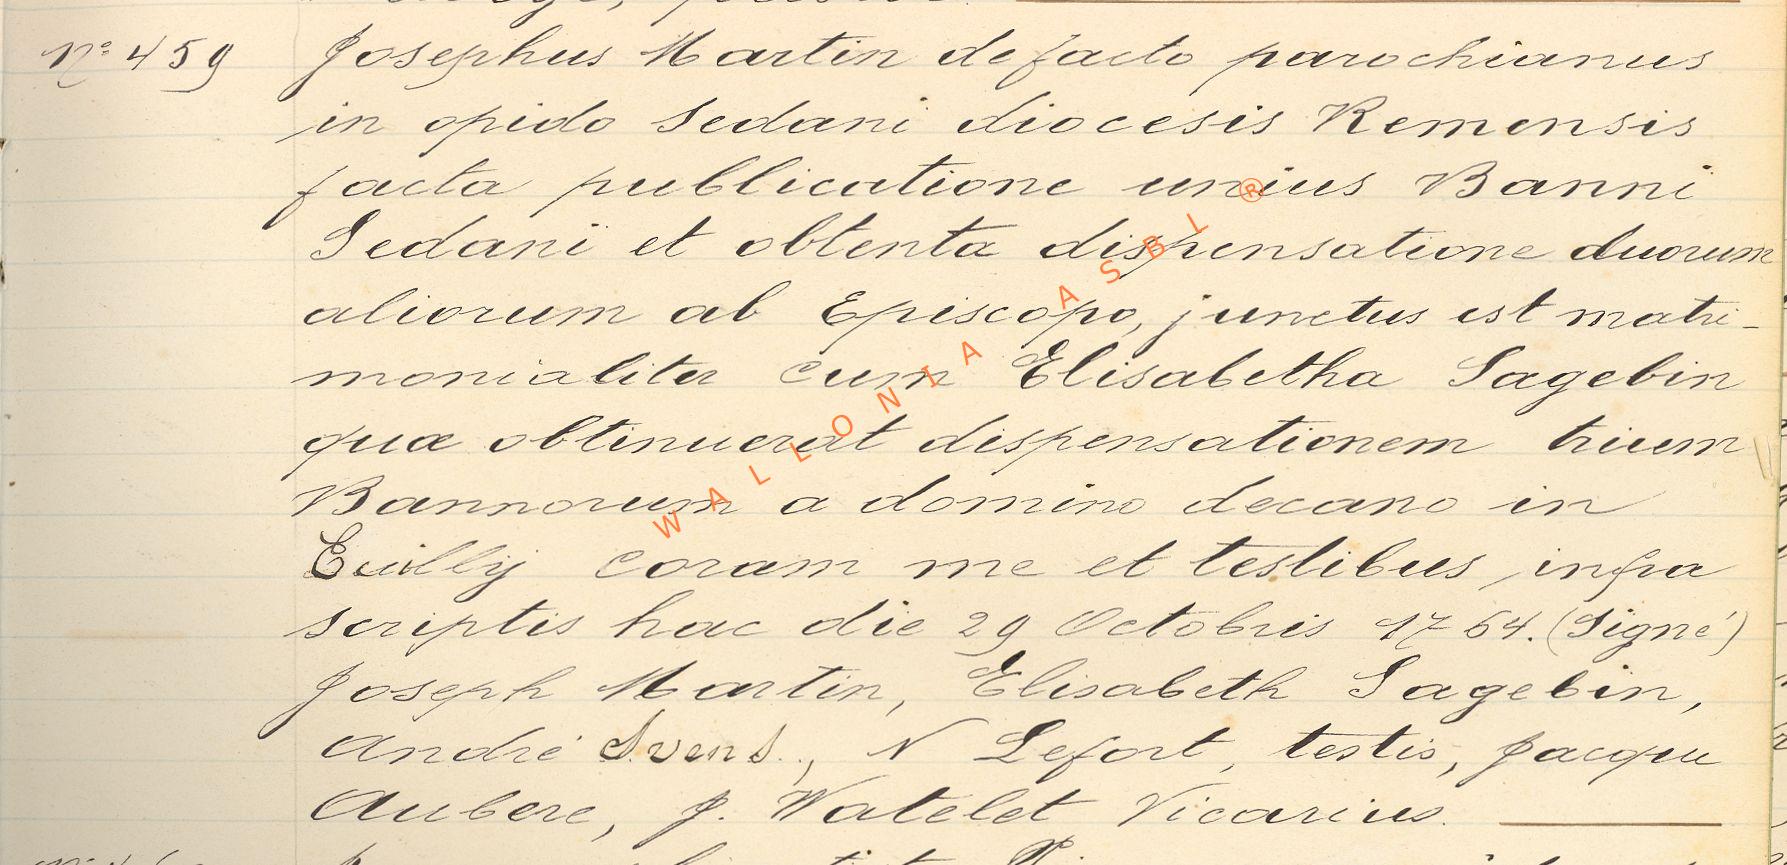 Nº 459 Josephus Martin de facto parochianus
in opido Sedani diocesis Remensis
facta publicatione unius Banni
Sedani et obtenta dispensatione duorum
aliorum ab Episcopo, junctus est matri-
monialiter cum Elisabetha Sagebin
quæ obtinuerat dispensationem trium
Bannorum a domino decano in
Euilly coram me et testibus infra
scriptis hac die 29 Octobris 1764. (Signé)
Joseph Martin, Elisabeth Sagebin,
André Svens., N Lefort, testis, Jacque
Aubere, J. Watelet Vicarius.
WALLONIA ASBL ®